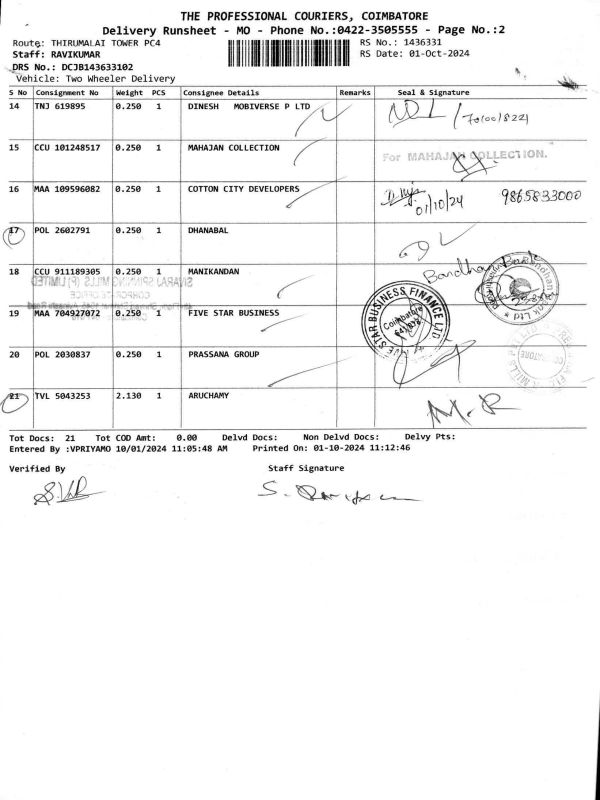 THE PROFESSIONAL COURIERS, COIMBATORE
Delivery Runsheet - MO - Phone No.:0422-3505555 - Page No.:2
Route: THIRUMALAI TOWER PC4 RS No.: 1436331
Staff: RAVIKUMAR RS Date: 01-Oct-2024
DRS No.: DCJB143633102
Vehicle: Two Wheeler Delivery
S No Consignment No Weight PCS Consignee Details Remarks Seal & Signature
14 TNJ 619895 0.250 1 DINESH MOBIVERSE P LTD
15 CCU 101248517 0.250 1 MAHAJAN COLLECTION For MAHAJAN COLLECTION.
16 MAA 109596082 0.250 1 COTTON CITY DEVELOPERS 01/10/24 9865833000
17 POL 2602791 0.250 1 DHANABAL
18 CCU 911189305 0.250 1 MANIKANDAN Bandhan Bank
SIVARAJ SPINNING MILLS (P) LIMITED
CORPORATE OFFICE
19 MAA 704927072 0.250 1 FIVE STAR BUSINESS FIVE STAR BUSINESS FINANCE LTD. Coimbatore
20 POL 2030837 0.250 1 PRASSANA GROUP
21 TVL 5043253 2.130 1 ARUCHAMY M.R
Tot Docs: 21 Tot COD Amt: 0.00 Delvd Docs: Non Delvd Docs: Delvy Pts:
Entered By :VPRIYAMO 10/01/2024 11:05:48 AM Printed On: 01-10-2024 11:12:46
Verified By Staff Signature